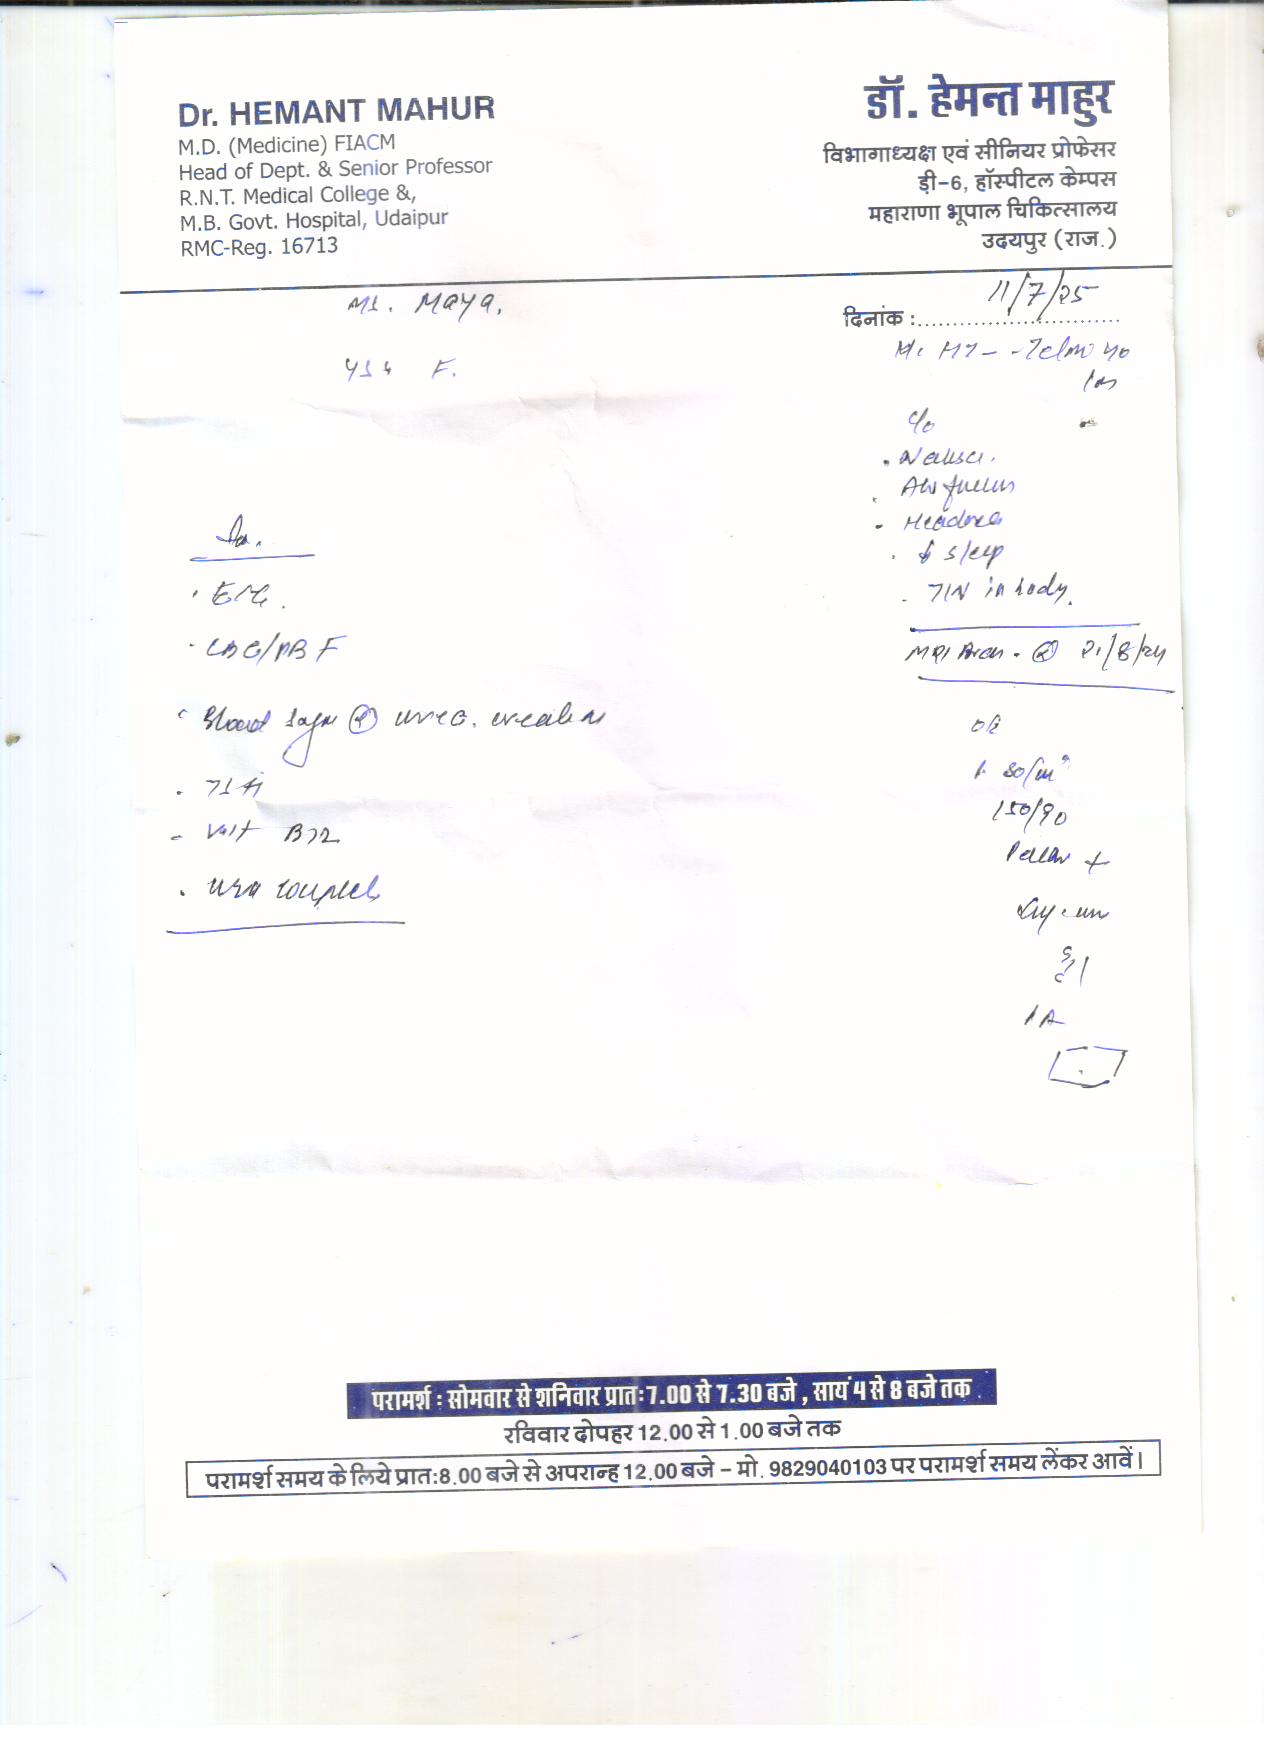 Dr. HEMANT MAHUR
M.D. (Medicine) FIACM
Head of Dept. & Senior Professor
R.N.T. Medical College &,
M.B. Govt. Hospital, Udaipur
RMC-Reg. 16713
डॉ. हेमन्त माहुर
विभागाध्यक्ष एवं सीनियर प्रोफेसर
ड़ी-6, हॉस्पीटल केम्पस
महाराणा भूपाल चिकित्सालय
उदयपुर (राज.)
Ms. Maya.
F.
दिनांक : 11/7/25
40
c/o
. Nausea.
. Headache
. ↓ sleep
- in body.
MRI Brain - 21/8/24
O/E
150/90
Pallor +
P/A
. ECG.
. CBC/PBF
. Blood Sugar urea. creatinine
. TSH
- Vit B12
. Urine complete
परामर्श : सोमवार से शनिवार प्रात: 7.00 से 7.30 बजे , सायं 4 से 8 बजे तक
रविवार दोपहर 12.00 से 1.00 बजे तक
परामर्श समय के लिये प्रात:8.00 बजे से अपरान्ह 12.00 बजे - मो. 9829040103 पर परामर्श समय लेंकर आवें।